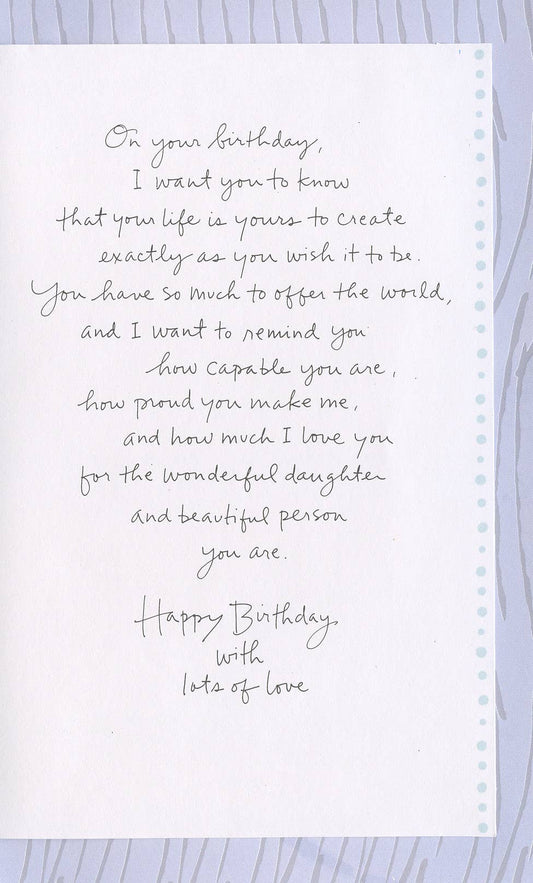 On your birthday,
I want you to know
that your life is yours to create
exactly as you wish it to be.
You have so much to offer the world,
and I want to remind you
how capable you are,
how proud you make me,
and how much I love you
for the wonderful daughter
and beautiful person
you are.
Happy Birthday
with
lots of love